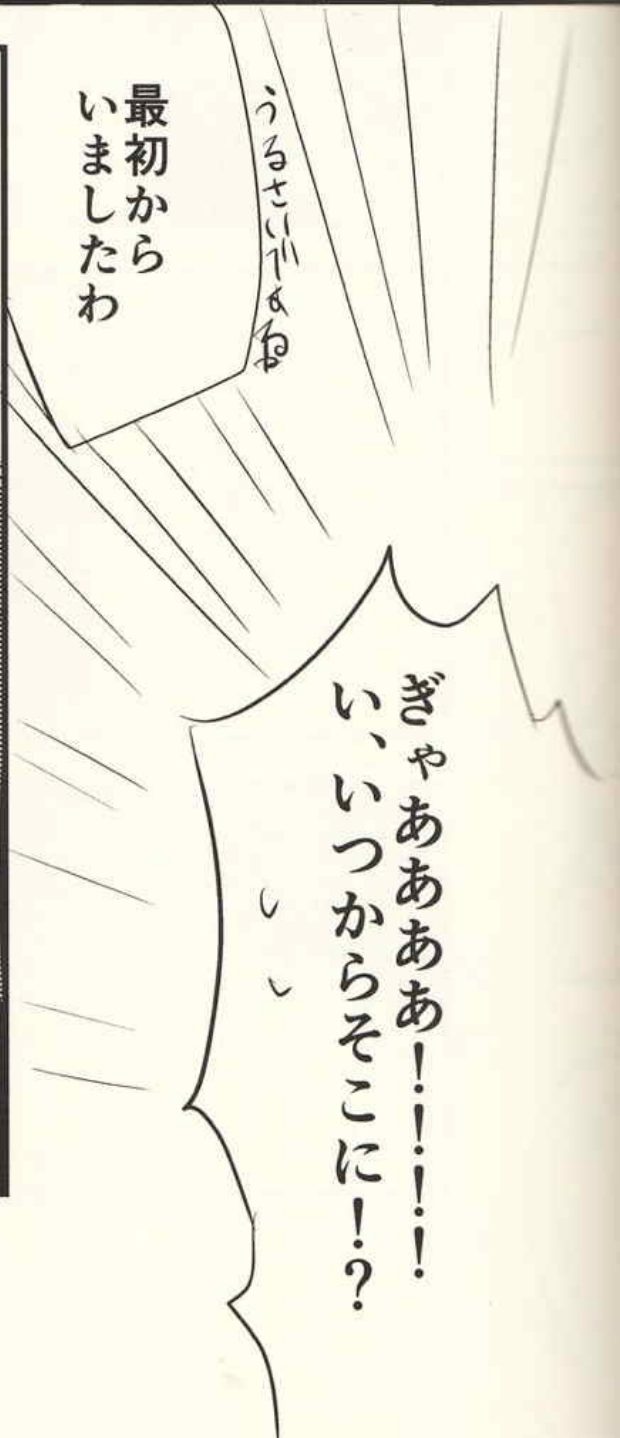 ぎゃああああ！！！！
い、いつからそこに！？
うるさいですね
最初から
いましたわ